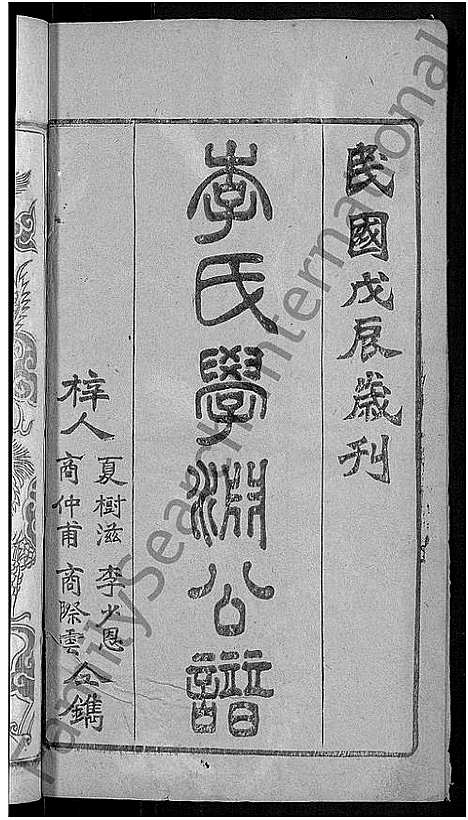 民國戊辰歲刋
李氏學淵公譜
梓人
夏樹滋 李少恩
商仲甫 商際雲
仝鐫
FamilySearch International